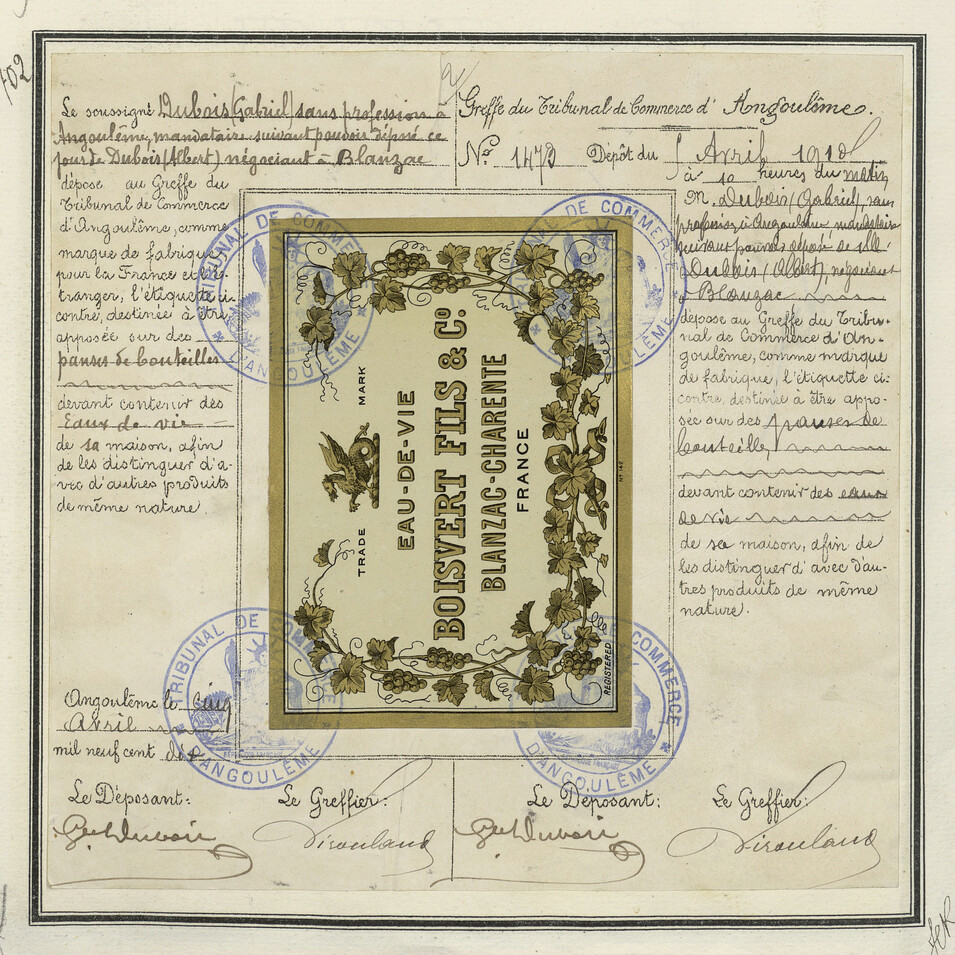 102
Le soussigné Dubois (Gabriel) sans profession à
Angoulême, mandataire suivant pouvoir déposé ce
jour de Dubois (Albert) négociant à Blanzac
dépose au Greffe du
Tribunal de Commerce
d'Angoulême, comme
marque de fabrique
pour la France et l'é-
tranger, l'étiquette ci-
contre, destinée à être
apposée sur des
panses de bouteilles
devant contenir des
Eaux de vie
de sa maison, afin
de les distinguer d'a-
vec d'autres produits
de même nature
Angoulême le cinq
Avril
mil neuf cent dix
Le Déposant:
Le Greffier:
Greffe du Tribunal de Commerce d'Angoulême.
No 1473 Dépôt du 5 Avril 1910
à 10 heures du matin
M. Dubois (Gabriel), sans
profession à Angoulême mandataire
suivant pouvoir déposé de
Dubois (Albert), négociant
à Blanzac
dépose au Greffe du Tribu-
nal de Commerce d'An-
goulême, comme marque
de fabrique, l'étiquette ci-
contre, destinée à être appo-
sée sur des panses de
bouteille,
devant contenir des eaux
de vie
de sa maison, afin de
les distinguer d'avec d'au-
tres produits de même
nature.
Le Déposant:
Le Greffier:
TRADE MARK
EAU-DE-VIE
BOISVERT FILS & Co.
BLANZAC-CHARENTE
FRANCE
REGISTERED
TRIBUNAL DE COMMERCE
D'ANGOULÊME
TRIBUNAL DE COMMERCE
D'ANGOULÊME
TRIBUNAL DE COMMERCE
D'ANGOULÊME
COMMERCE
D'ANGOULÊME